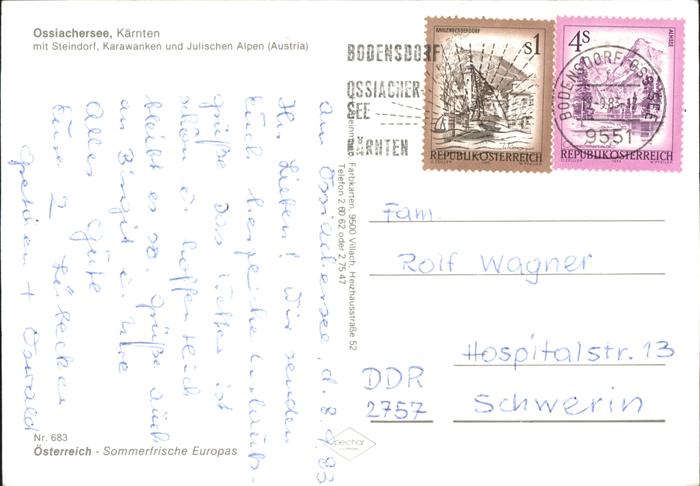 Ossiachersee, Kärnten
mit Steindorf, Karawanken und Julischen Alpen (Austria)
BODENSDORF
OSSIACHER-
SEE
KÄRNTEN
S1
REPUBLIK ÖSTERREICH
4S
ALMSEE
REPUBLIK ÖSTERREICH
BODENSDORF
9551
Farbkarten, 9500 Villach, Heizhausstraße 52
Telefon 2 60 62 oder 2 75 47
am Ossiachersee, d. 8. 9. 83
Ihr Lieben! Wir senden
Euch herzliche Urlaubs-
grüße. Das Wetter ist
schön u. hoffentlich
bleibt es so. Grüße auch
an Birgit u. Uwe
Alles Gute
Eure 2
Gretchen + Oswald
Fam.
Rolf Wagner
Hospitalstr. 13
DDR
2757 Schwerin
Nr. 683
Österreich - Sommerfrische Europas